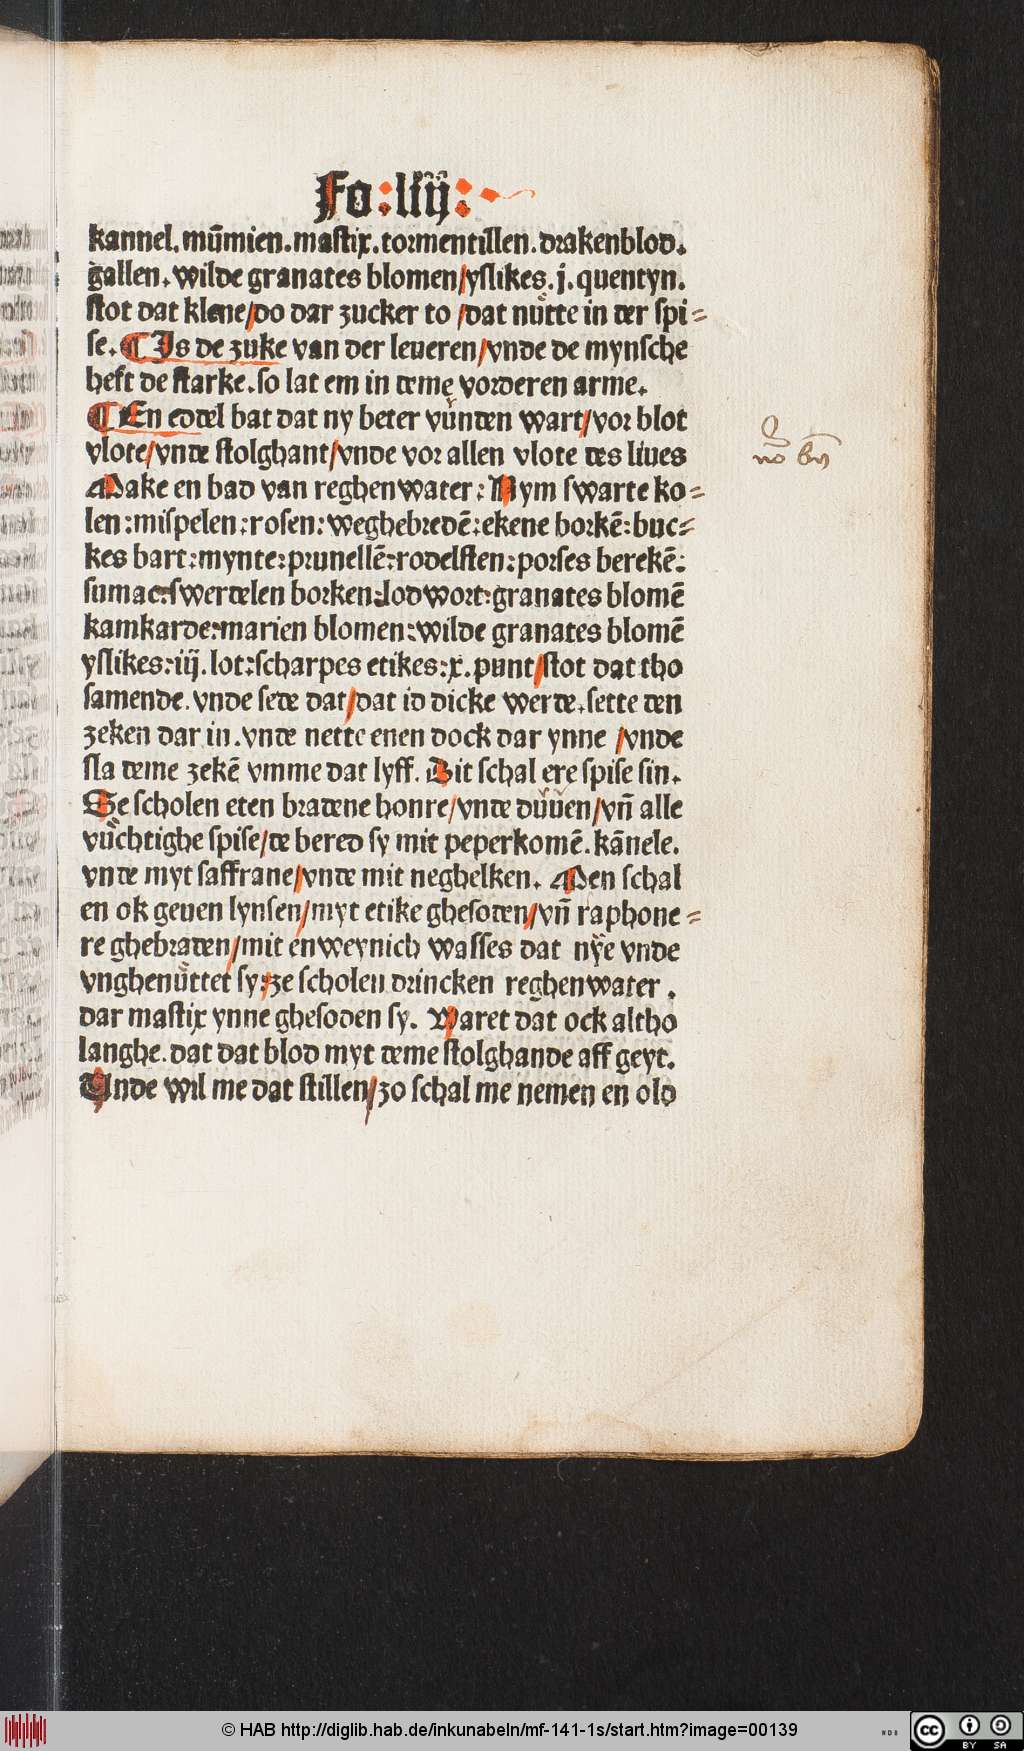 Fo:lxij:
kannel. mūmien. mastix. tormentillen. drakenblod.
gallen. wilde granates blomen/yslikes. j. quentyn.
stot dat klene/do dar zucker to /dat nuͤtte in der spi=
se. ¶ Js de zuke van der leueren/vnde de mynsche
heft de starke. so lat em in deme vorderen arme.
¶ En eddel bat dat ny beter vuͤnden wart/vor blot
vlote/vnde stolghant/vnde vor allen vlote des liues
Make en bad van reghenwater: Nym swarte ko=
len: mispelen: rosen: weghebredē: ekene borkē: buc=
kes bart: mynte: prunellē: rodelsten: porses berekē:
sumac: swerdelen borken: lodwort: granates blomē
kamkarde: marien blomen: wilde granates blomē
yslikes: iij. lot: scharpes etikes: x. punt/stot dat tho
samende. vnde sede dat/dat id dicke werde. sette den
zeken dar in. vnde nette enen dock dar ynne /vnde
sla deme zekē vmme dat lyff. Dit schal ere spise sin.
Se scholen eten bradene honre/vnde duͤuen/vn̄ alle
vuͤchtighe spise/de bered sy mit peperkomē. kānele.
vnde myt saffrane/vnde mit neghelken. Men schal
en ok geuen lynsen/myt etike ghesoden/vn̄ raphone=
re ghebraden/mit en weynich wasses dat nyͤe vnde
vnghenuͤttet sy: ze scholen drincken reghenwater.
dar mastix ynne ghesoden sy. Waret dat ock altho
langhe. dat dat blod myt deme stolghande aff geyt.
Vnde wil me dat stillen/zo schal me nemen en old
© HAB http://diglib.hab.de/inkunabeln/mf-141-1s/start.htm?image=00139
WDB
cc BY SA